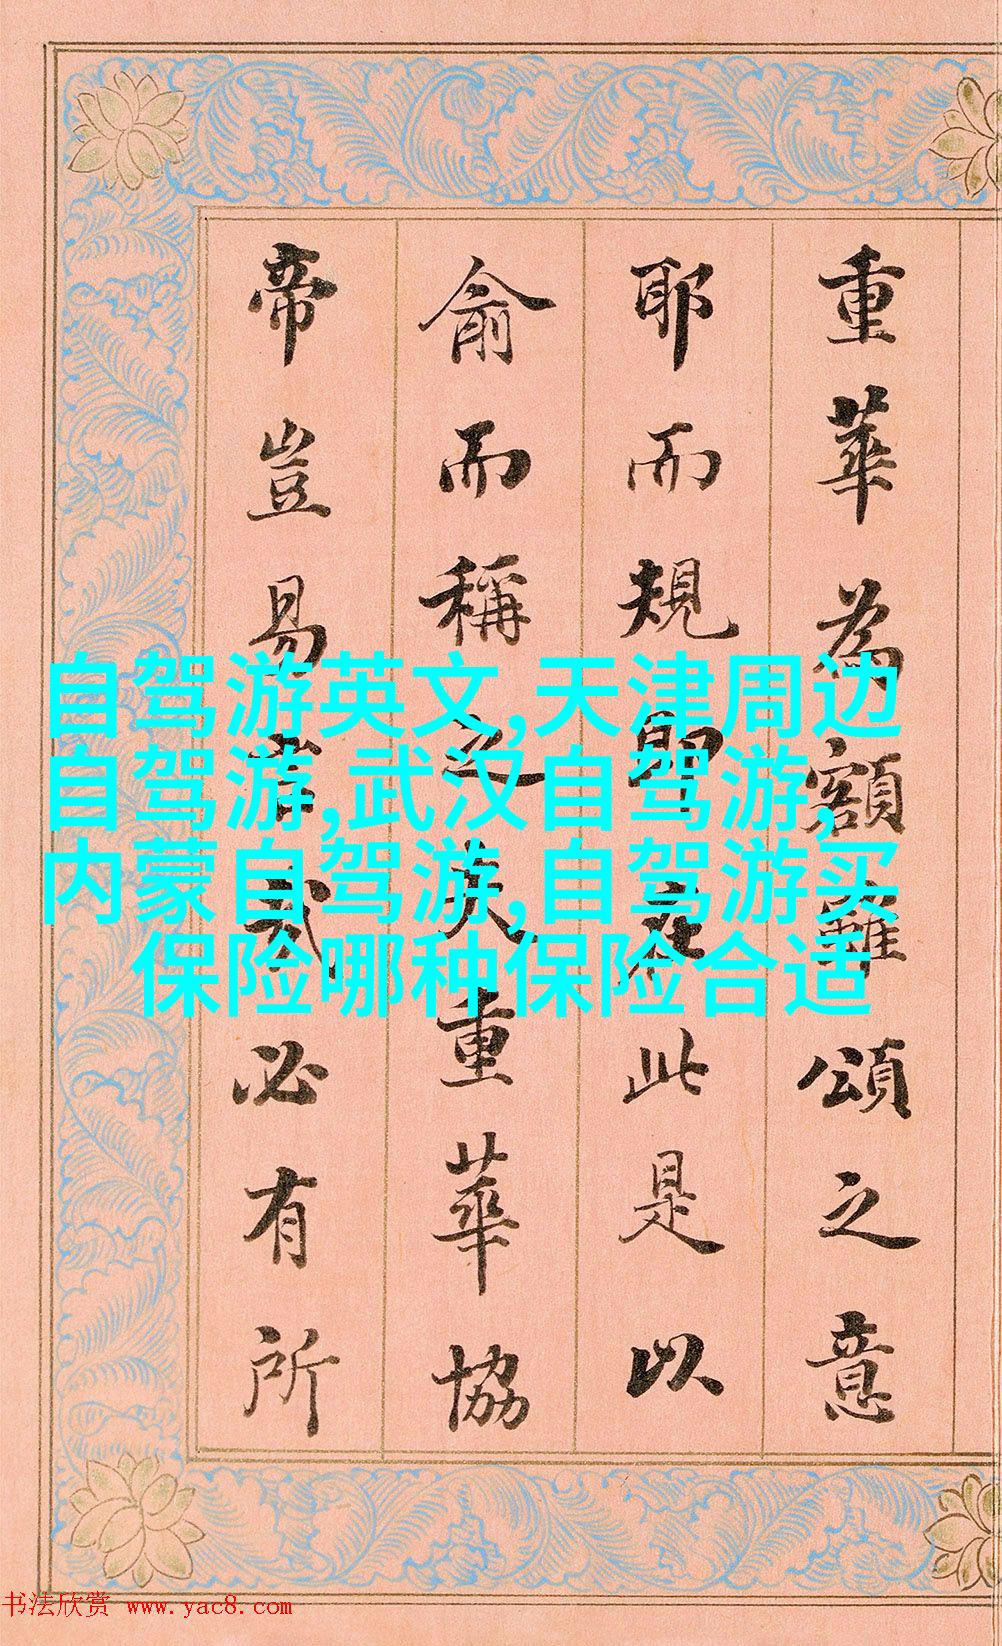 重華為額雖頌之意
耶而規即在此是以
俞而稱之矣重華協
帝豈易言哉必有所
自驾游英文,天津周边
自驾游,武汉自驾游,
内蒙自驾游,自驾游买
保险哪种保险合适
书法欣赏 www.yac8.com